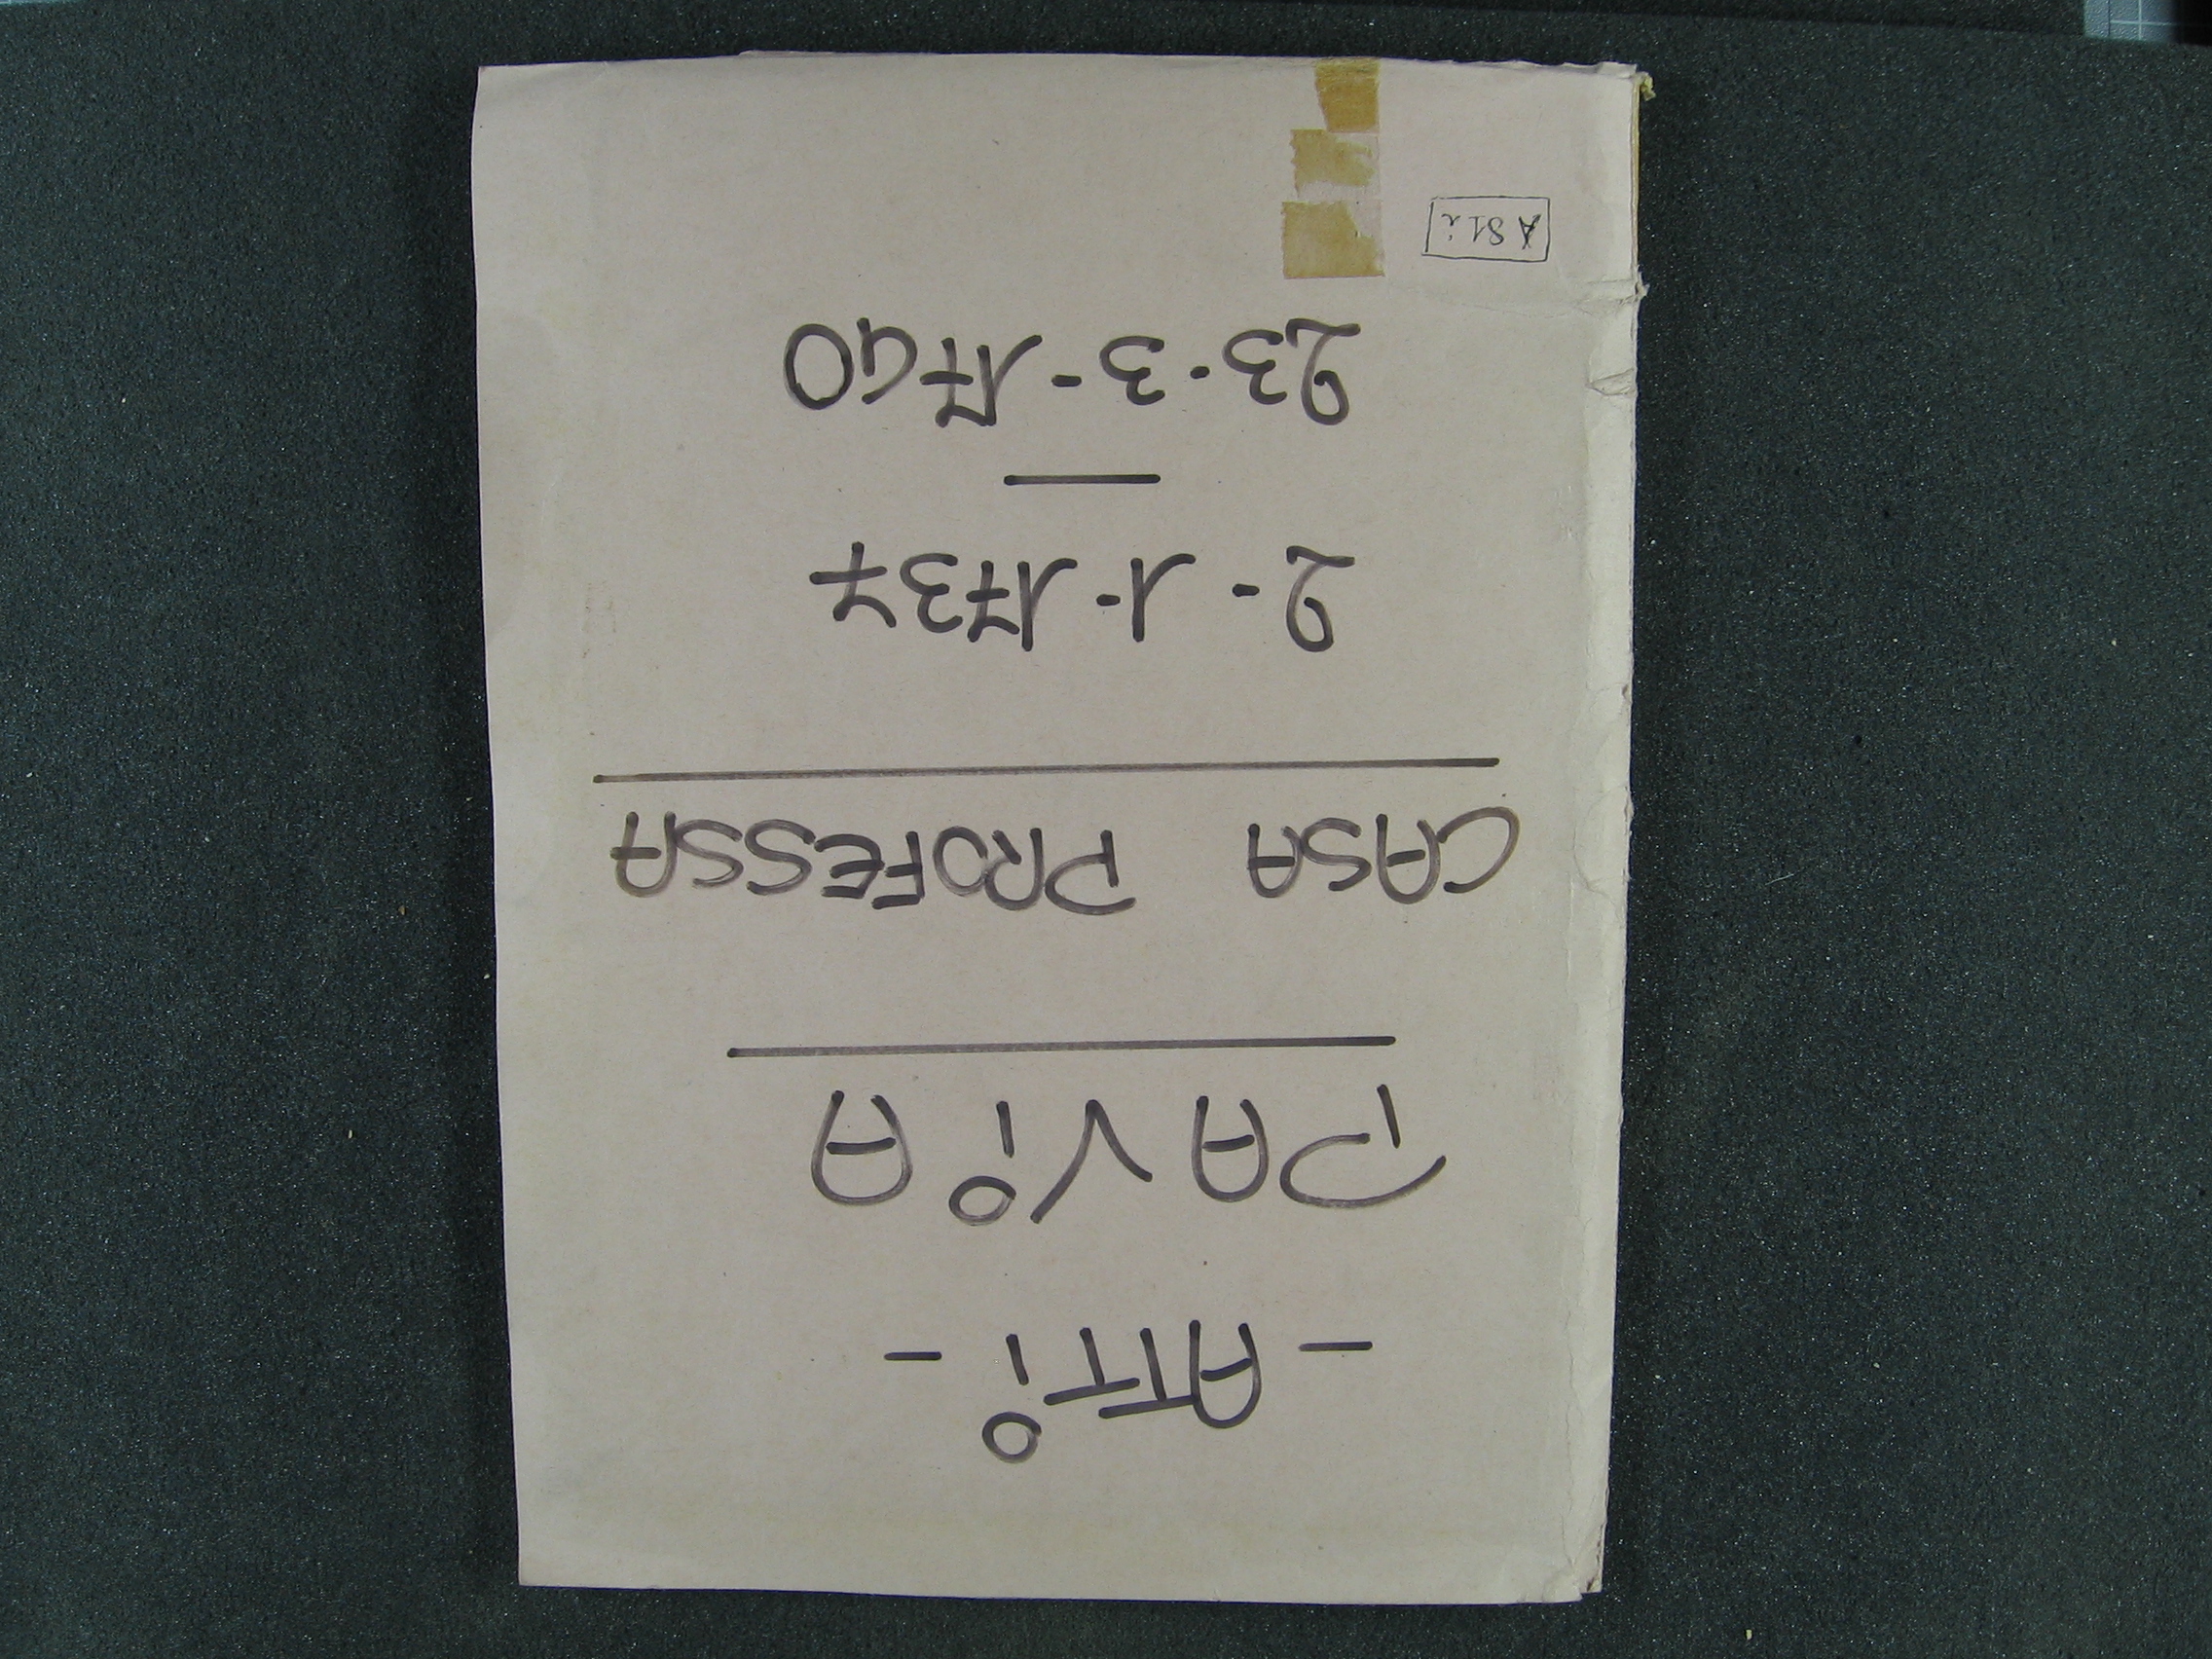 - ATTi -
PAViA
CASA PROFESSA
2 - 1 - 1737
—
23 - 3 - 1740
A 81 i